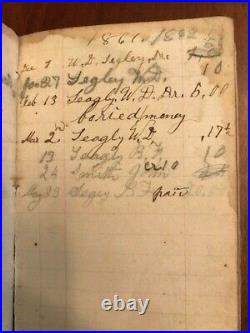 1861. 1882
Dec 7 W. D. Segley, Dr. 10
Jan 27 Segley W. D.
Feb 13 Seagly W. D. Dr. 5,00
boried money
Mar 2nd Seagly W. D. ,17½
13 Seagly B. F 10
24 Smith John cr10
May 23 Segey B F paid